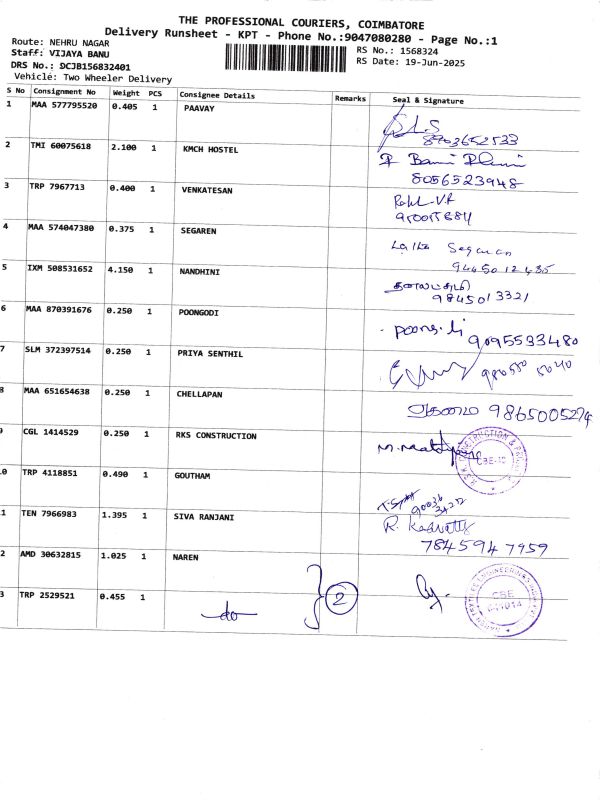 THE PROFESSIONAL COURIERS, COIMBATORE
Delivery Runsheet - KPT - Phone No.:9047080280 - Page No.:1
Route: NEHRU NAGAR
Staff: VIJAYA BANU
DRS No.: DCJB156832401
Vehicle: Two Wheeler Delivery
RS No.: 1568324
RS Date: 19-Jun-2025
S No Consignment No Weight PCS Consignee Details Remarks Seal & Signature
1 MAA 577795520 0.405 1 PAAVAY
8903652533
2 TMI 60075618 2.100 1 KMCH HOSTEL
8056523948
3 TRP 7967713 0.400 1 VENKATESAN
4 MAA 574047380 0.375 1 SEGAREN Segaren
5 IXM 508531652 4.150 1 NANDHINI
9845013321
6 MAA 870391676 0.250 1 POONGODI
9095533480
7 SLM 372397514 0.250 1 PRIYA SENTHIL
8 MAA 651654638 0.250 1 CHELLAPAN
9865005274
9 CGL 1414529 0.250 1 RKS CONSTRUCTION
CBE-10
0 TRP 4118851 0.490 1 GOUTHAM
1 TEN 7966983 1.395 1 SIVA RANJANI
7845947959
2 AMD 30632815 1.025 1 NAREN
3 TRP 2529521 0.455 1 do 2
CBE
641014